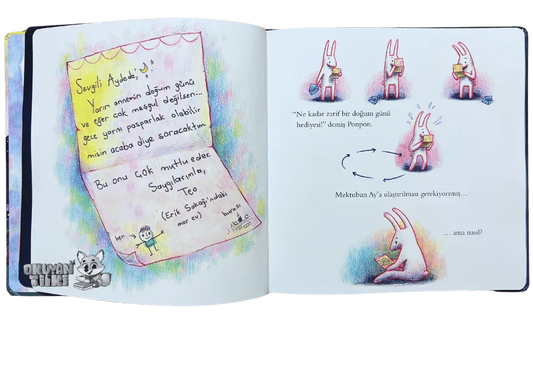 Sevgili Aydede,
Yarın annemin doğum günü
ve eğer çok meşgul değilsen...
gece yarısı pasparlak olabilir
misin acaba diye soracaktım.
Bu onu çok mutlu eder.
Saygılarımla,
Teo
(Erik Sokağı'ndaki
mor ev)
ben
burası
OKUYAN
TİLKİ
"Ne kadar zarif bir doğum günü
hediyesi!" demiş Ponpon.
Mektubun Ay'a ulaştırılması gerekiyormuş...
... ama nasıl?